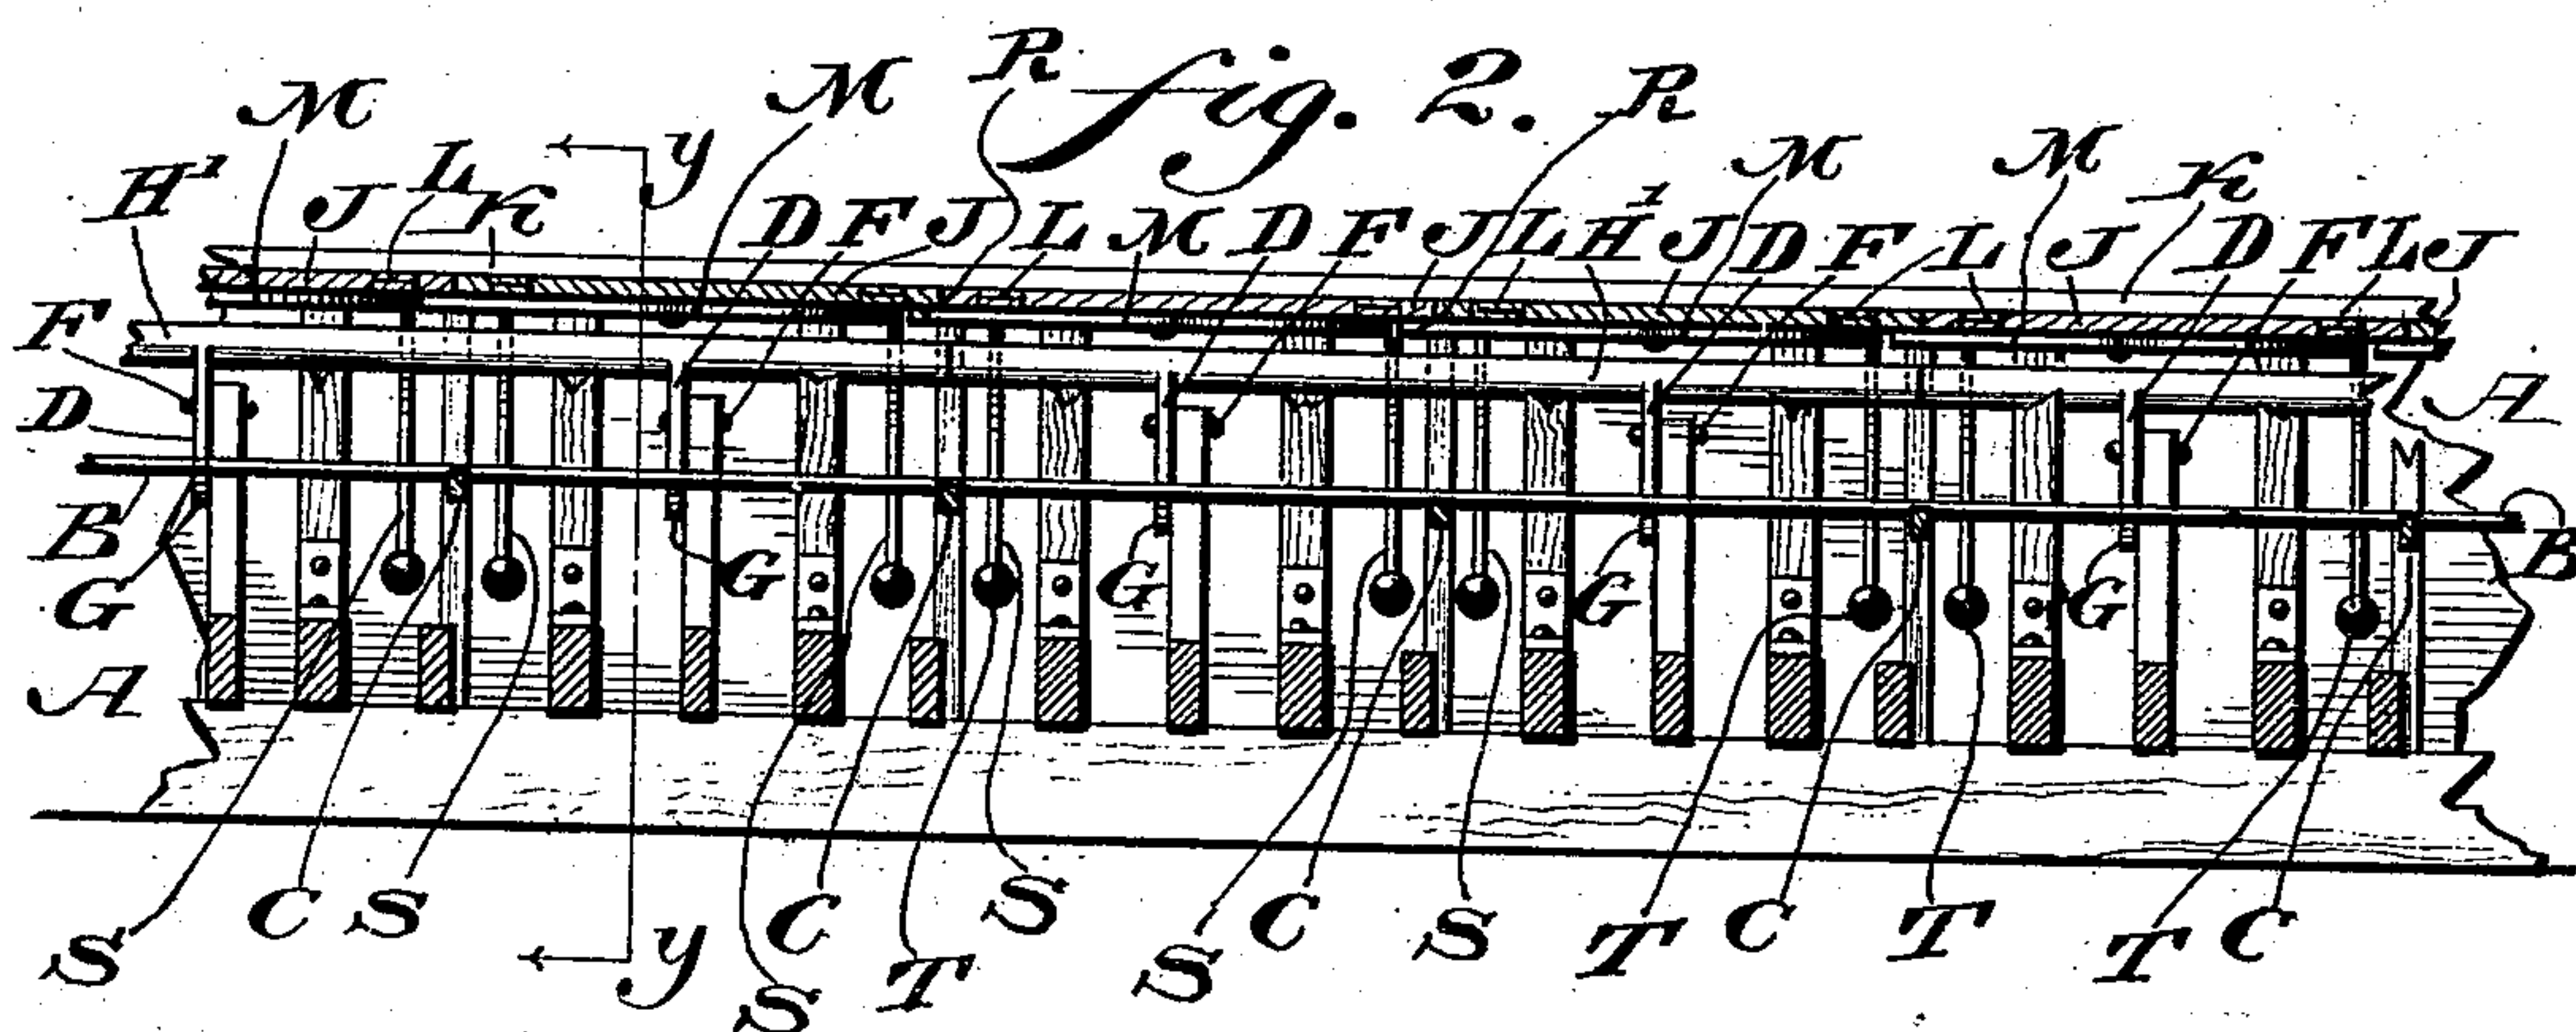 fig. 2.
M M R R M M
H¹ J L K y D F J L M D F J L H¹ J D F L J K D F L J
F A
D
B B
G G G G G
A
S C S y S C T S S C S T C T T C